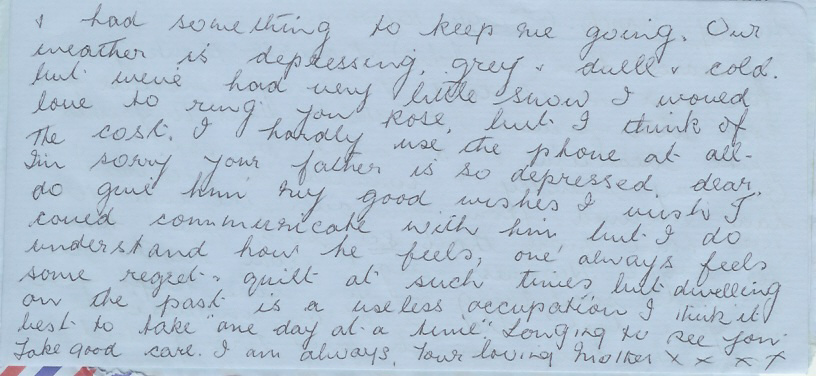 & had something to keep me going. Our
weather is depressing, grey & dull & cold.
but weve had very little snow I would
love to ring you Rose, but I think of
the cost. I hardly use the phone at all.
I'm sorry your father is so depressed, dear,
do give him my good wishes I wish I
could communicate with him but I do
understand how he feels, one always feels
some regret & guilt at such times but dwelling
on the past is a useless occupation I think it
best to take "one day at a time" Longing to see you.
Take good care. I am always, Your loving Mother x x x x